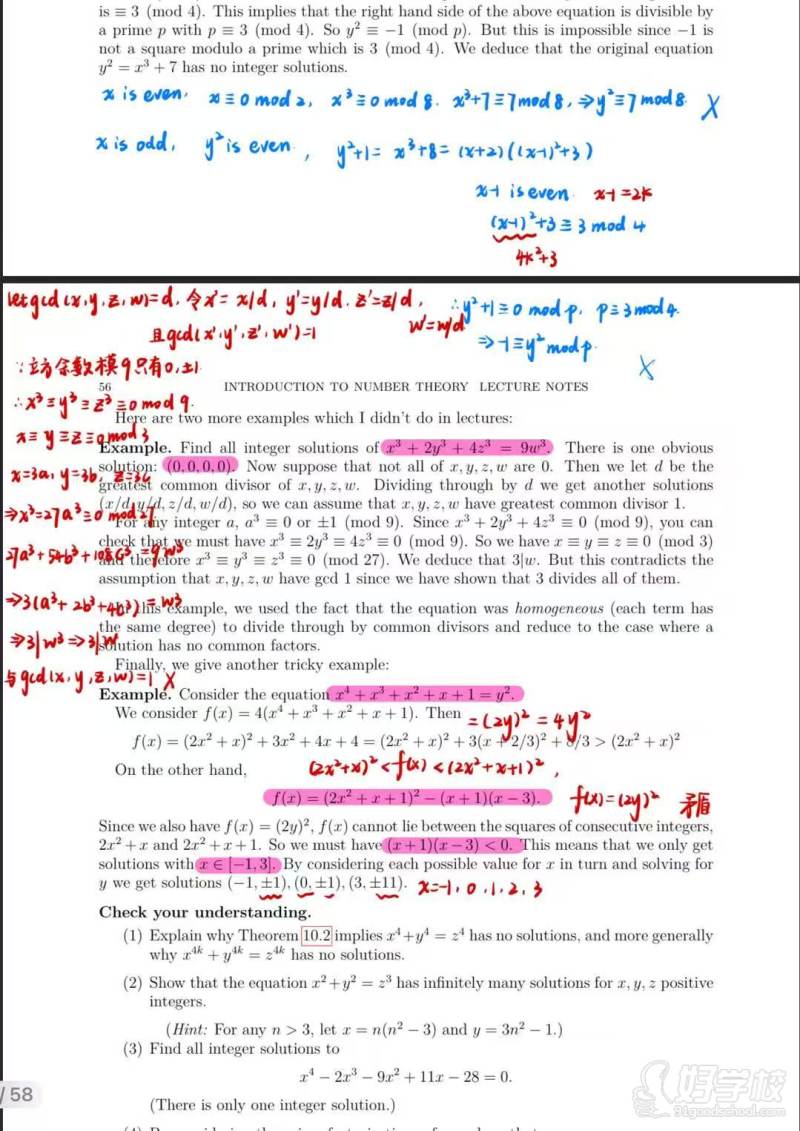 is ≡ 3 (mod 4). This implies that the right hand side of the above equation is divisible by
a prime p with p ≡ 3 (mod 4). So y² ≡ −1 (mod p). But this is impossible since −1 is
not a square modulo a prime which is 3 (mod 4). We deduce that the original equation
y² = x³ + 7 has no integer solutions.
x is even, x ≡ 0 mod 2, x³ ≡ 0 mod 8. x³+7 ≡ 7 mod 8, ⇒ y² ≡ 7 mod 8 X
x is odd, y² is even, y²+1 = x³+8 = (x+2)((x-1)²+3)
x-1 is even x-1 = 2k
(x-1)²+3 ≡ 3 mod 4
4k²+3
let gcd(x,y,z,w)=d. 令x'= x/d, y'=y/d. z'=z/d, w'=w/d
且gcd(x',y',z',w')=1
∴ y²+1 ≡ 0 mod p, p ≡ 3 mod 4.
⇒ -1 ≡ y² mod p. X
∵ 立方余数模9只有0,±1
∴ x³ ≡ y³ ≡ z³ ≡ 0 mod 9.
x ≡ y ≡ z ≡ 0 mod 3
x=3a, y=3b, z=3c
⇒ x³=27a³ ≡ 0 mod 27
27a³+54b³+108c³=9w³
⇒ 3(a³+2b³+4c³)=w³
⇒ 3|w³ ⇒ 3|w
与gcd(x,y,z,w)=1 X
56 INTRODUCTION TO NUMBER THEORY LECTURE NOTES
Here are two more examples which I didn't do in lectures:
Example. Find all integer solutions of x³ + 2y³ + 4z³ = 9w³. There is one obvious
solution: (0, 0, 0, 0). Now suppose that not all of x, y, z, w are 0. Then we let d be the
greatest common divisor of x, y, z, w. Dividing through by d we get another solutions
(x/d, y/d, z/d, w/d), so we can assume that x, y, z, w have greatest common divisor 1.
For any integer a, a³ ≡ 0 or ±1 (mod 9). Since x³ + 2y³ + 4z³ ≡ 0 (mod 9), you can
check that we must have x³ ≡ 2y³ ≡ 4z³ ≡ 0 (mod 9). So we have x ≡ y ≡ z ≡ 0 (mod 3)
and therefore x³ ≡ y³ ≡ z³ ≡ 0 (mod 27). We deduce that 3|w. But this contradicts the
assumption that x, y, z, w have gcd 1 since we have shown that 3 divides all of them.
In this example, we used the fact that the equation was homogeneous (each term has
the same degree) to divide through by common divisors and reduce to the case where a
solution has no common factors.
Finally, we give another tricky example:
Example. Consider the equation x⁴ + x³ + x² + x + 1 = y².
We consider f(x) = 4(x⁴ + x³ + x² + x + 1). Then = (2y)² = 4y²
f(x) = (2x² + x)² + 3x² + 4x + 4 = (2x² + x)² + 3(x + 2/3)² + 8/3 > (2x² + x)²
On the other hand, (2x²+x)² < f(x) < (2x²+x+1)²,
f(x) = (2x² + x + 1)² − (x + 1)(x − 3). f(x)=(2y)² 矛盾
Since we also have f(x) = (2y)², f(x) cannot lie between the squares of consecutive integers,
2x² + x and 2x² + x + 1. So we must have (x + 1)(x − 3) < 0. This means that we only get
solutions with x ∈ [−1, 3]. By considering each possible value for x in turn and solving for
y we get solutions (−1, ±1), (0, ±1), (3, ±11). x=-1, 0, 1, 2, 3
Check your understanding.
(1) Explain why Theorem 10.2 implies x⁴+y⁴ = z⁴ has no solutions, and more generally
why x⁴ᵏ + y⁴ᵏ = z⁴ᵏ has no solutions.
(2) Show that the equation x² + y² = z³ has infinitely many solutions for x, y, z positive
integers.
(Hint: For any n > 3, let x = n(n² − 3) and y = 3n² − 1.)
(3) Find all integer solutions to
x⁴ − 2x³ − 9x² + 11x − 28 = 0.
(There is only one integer solution.)
/ 58
好学校
91goodschool.com